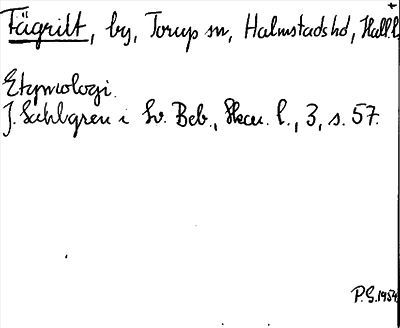 Fägrilt, by, Torup sn, Halmstads hd, Hall. l.
Etymologi.
J. Sahlgren i Sv. Beb., Skau. l., 3, s. 57.
P.S. 1954